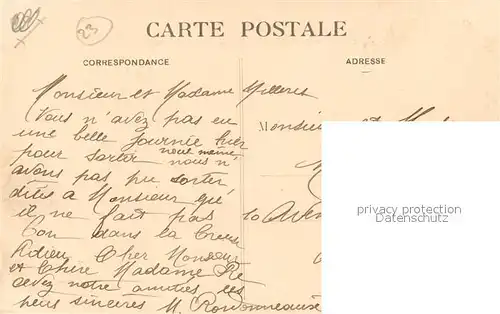 23
CARTE POSTALE
CORRESPONDANCE
ADRESSE
Monsieur et Madame Milleret
Vous n'avez pas eu
une belle journée hier
pour sortir nout même
nous n'
avons pas pu sorter,
dites a Monsieur qui
il ne fait pas
bon dans la Creuse
Adieu Cher Monsieur
et Chère Madame Re
cevez notre amitiés les
plus sincères M.
Monsieur et
10 Aven
privacy protection
Datenschutz